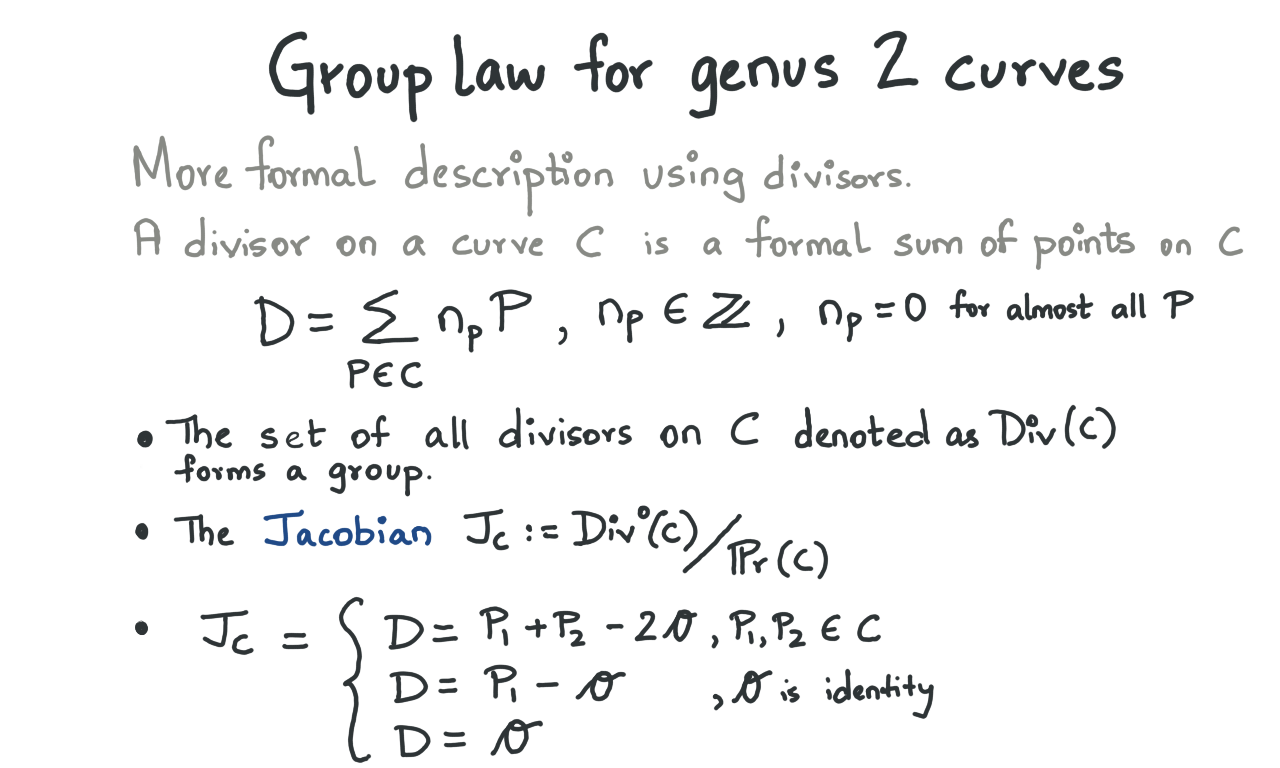 Group law for genus 2 curves
More formal description using divisors.
A divisor on a curve C is a formal sum of points on C
D = ∑ n_p P , n_p ∈ ℤ , n_p = 0 for almost all P
P∈C
• The set of all divisors on C denoted as Div(C)
forms a group.
• The Jacobian J_C := Div°(C)/Pr(C)
• J_C = { D = P₁ + P₂ - 2𝒪 , P₁, P₂ ∈ C
D = P₁ - 𝒪 , 𝒪 is identity
D = 𝒪